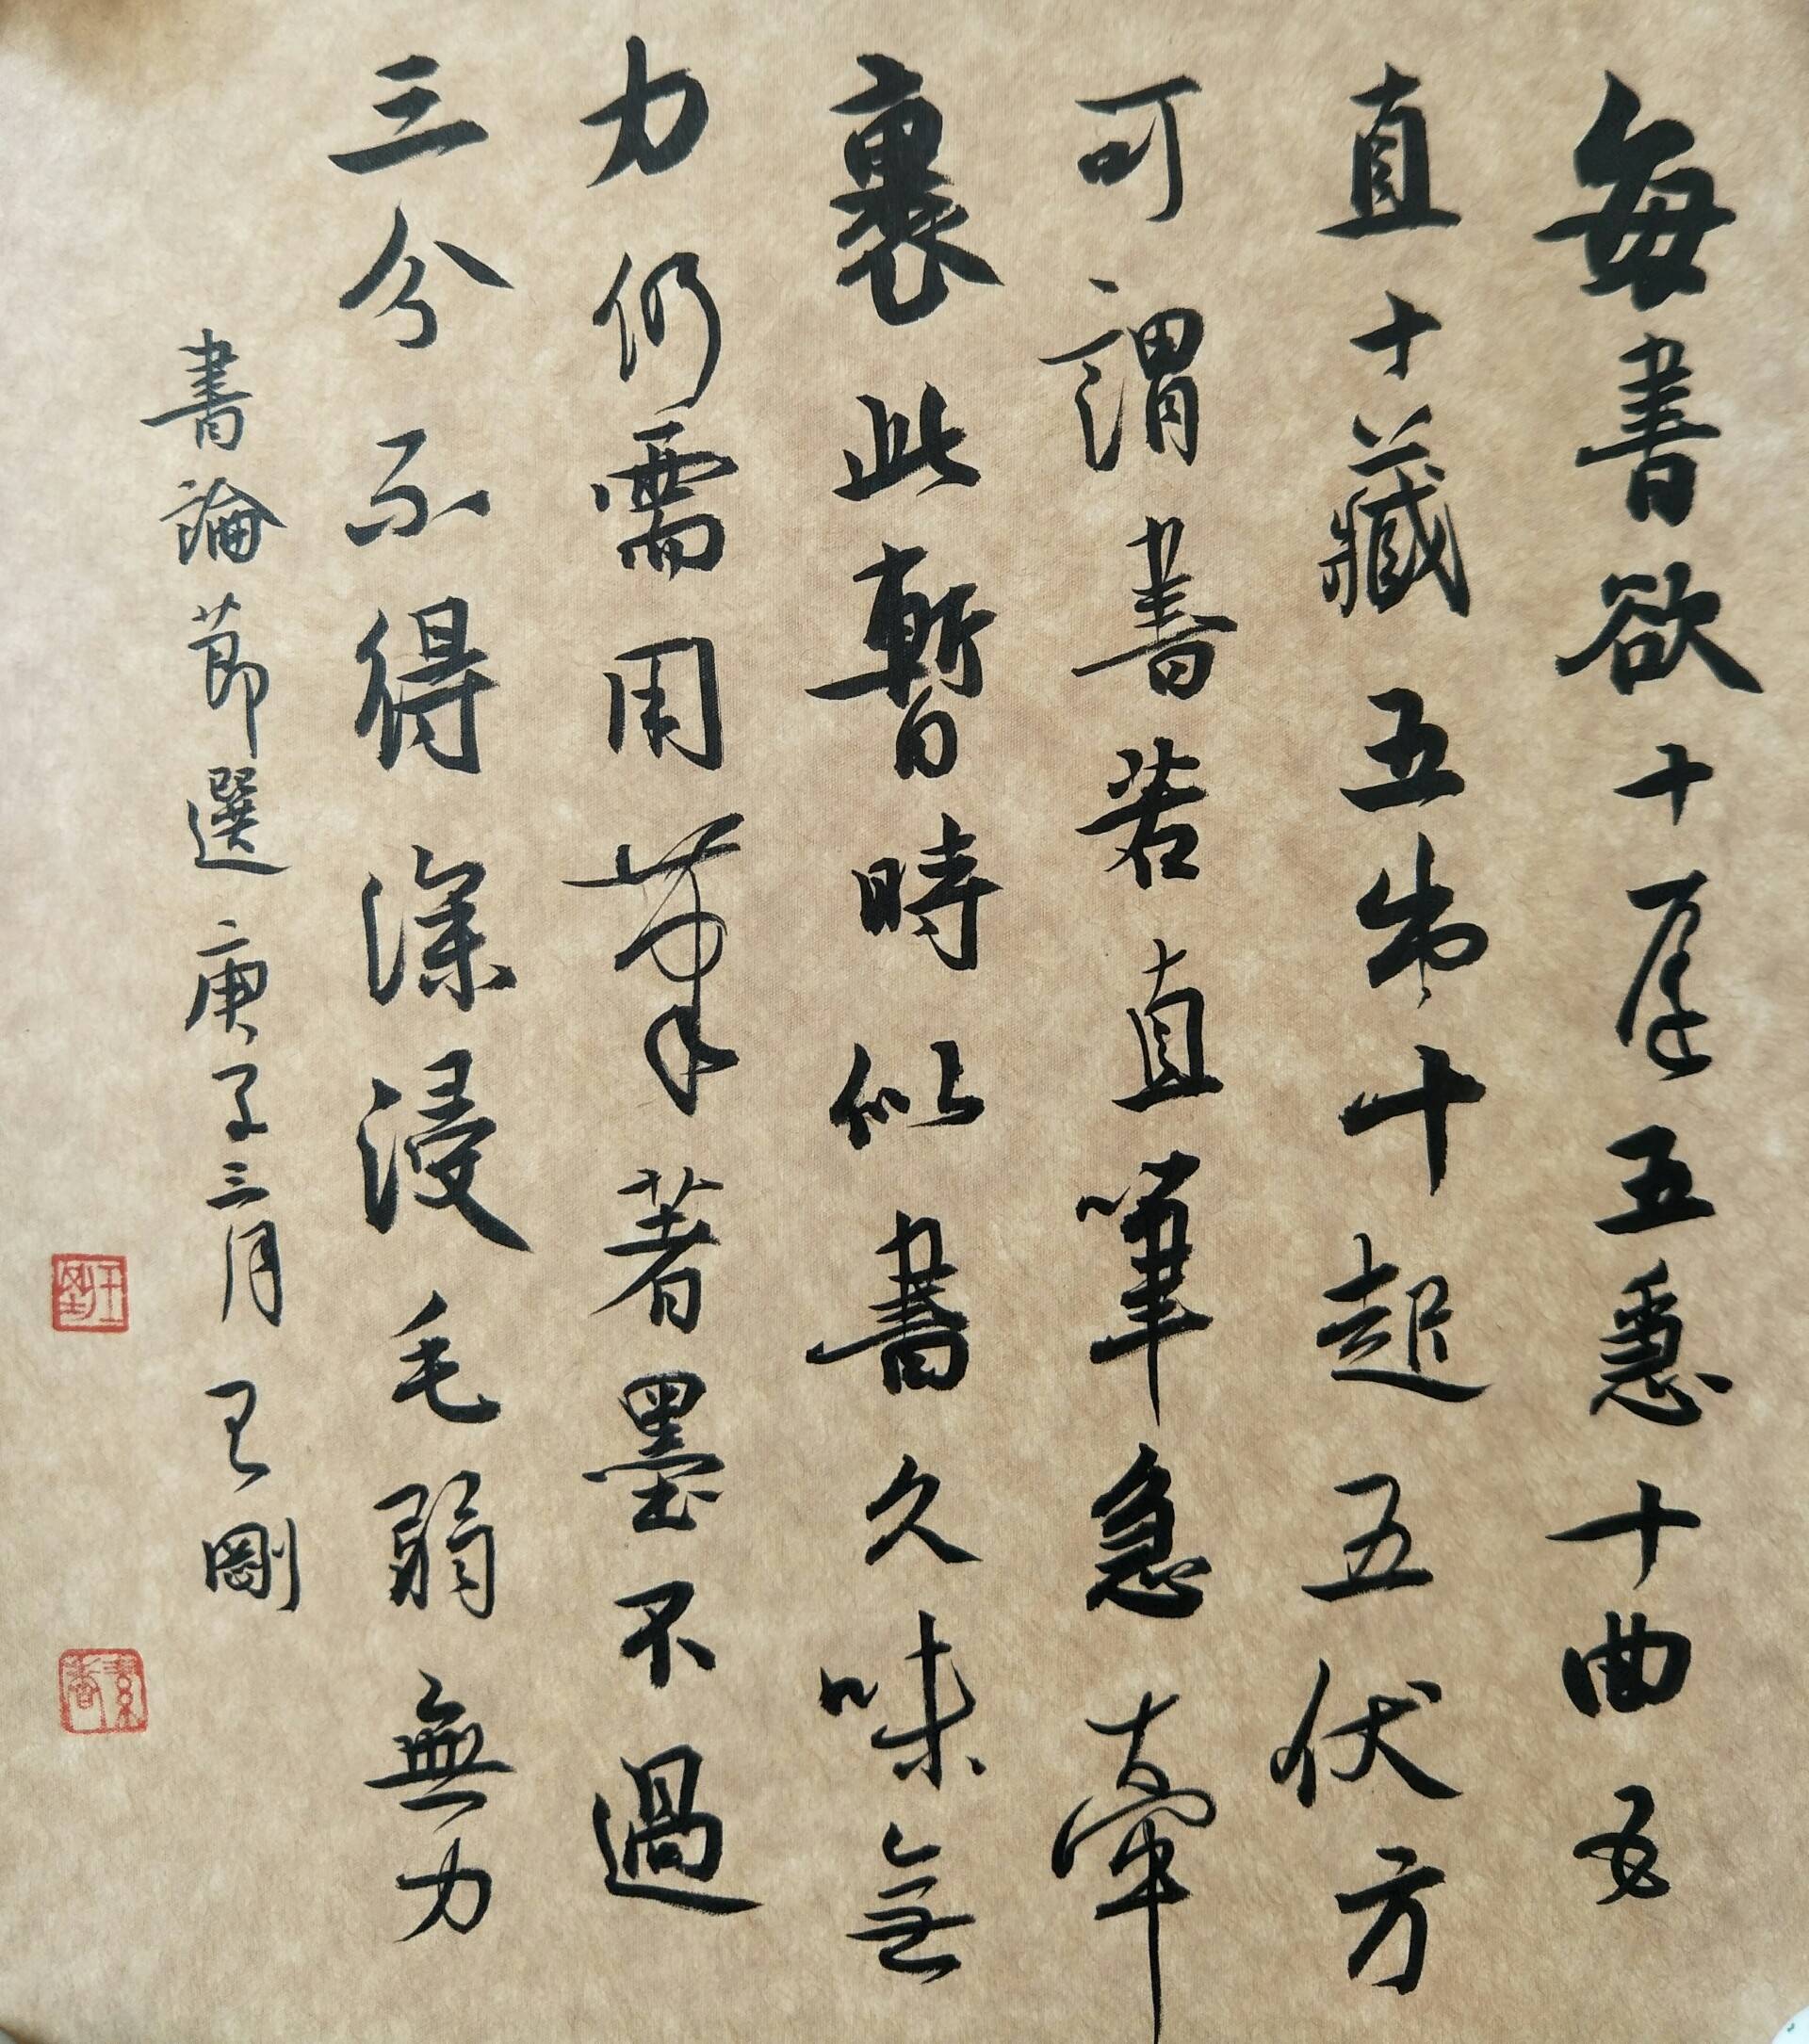 每書欲十遲五急十曲五
直十藏五出十起五伏方
可謂書若直筆急牽
裹此暫時似書久味無
力仍需用筆著墨不過
三分不得深浸毛弱無力
書論節選庚子三月王剛
王剛
素書